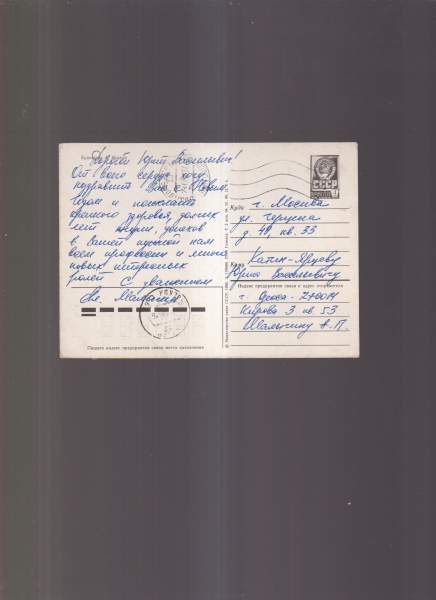 Дорогой Юрий Васильевич!
От всего сердца хочу
поздравить Вас с Новым
Годом и пожелать
крепкого здоровья, долгих
лет жизни, успехов
в Вашей нужной нам
всем профессии и много
новых интересных
ролей. С уважением
Ал. Малыгин.
СССР
Куда г. Москва
ул.
д. 49, кв. 33
Кому Катин-Ярцеву
Юрию Васильевичу
Индекс предприятия связи и адрес отправителя
г. Одесса - 270014
Кирова 3 кв. 53
Малыгину А. П.
Пишите индекс предприятия связи места назначения
© Министерство связи СССР